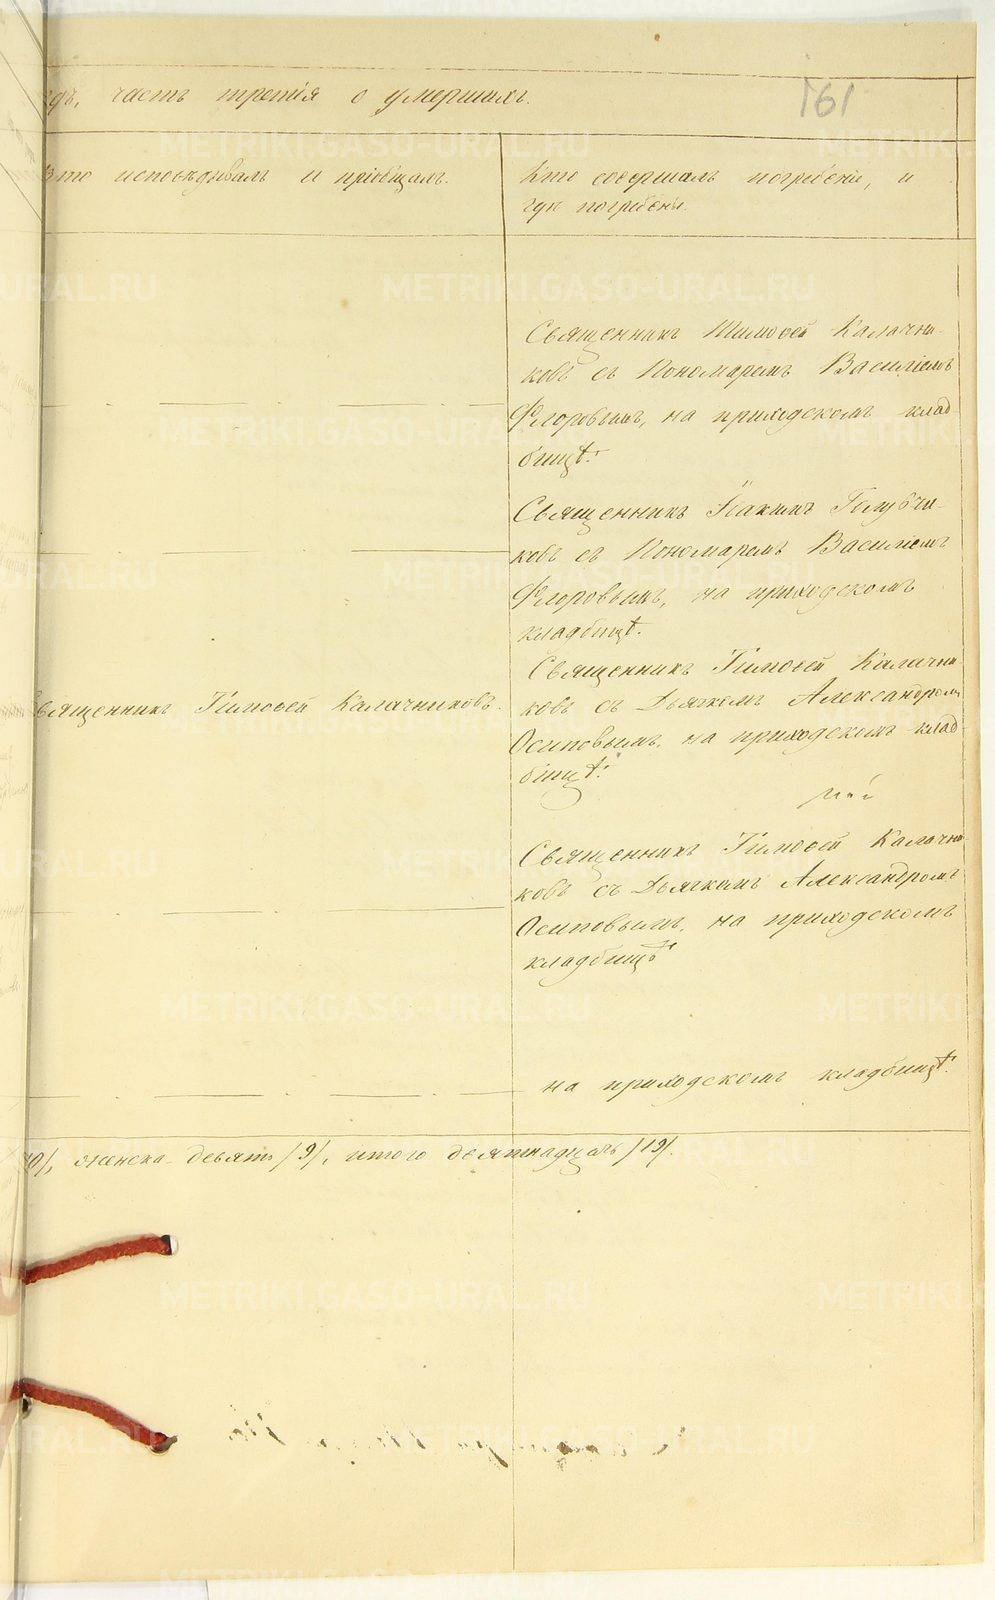 годъ, часть третія о умершихъ.
161
Кто исповѣдывалъ и пріобщалъ.
Кто совершалъ погребеніе, и
гдѣ погребены.
Священникъ Тимоѳей Калачни-
ковъ съ Пономаремъ Василіемъ
Флоровымъ, на приходскомъ клад
бищѣ.
Священникъ Іоакимъ Голубчи-
ковъ съ Пономаремъ Василіемъ
Флоровымъ, на приходскомъ
кладбищѣ.
Священникъ Тимоѳей Калачниковъ.
Священникъ Тимоѳей Калачни
ковъ съ Дьячкомъ Александромъ
Осиповымъ, на приходскомъ клад-
бищѣ.
Священникъ Тимоѳей Калачни-
ковъ съ Дьячкомъ Александромъ
Осиповымъ, на приходскомъ
кладбищѣ
на приходскомъ кладбищѣ.
10/, женска девять /9/, итого девятнадцать /19/.
METRIKI.GASO-URAL.RU